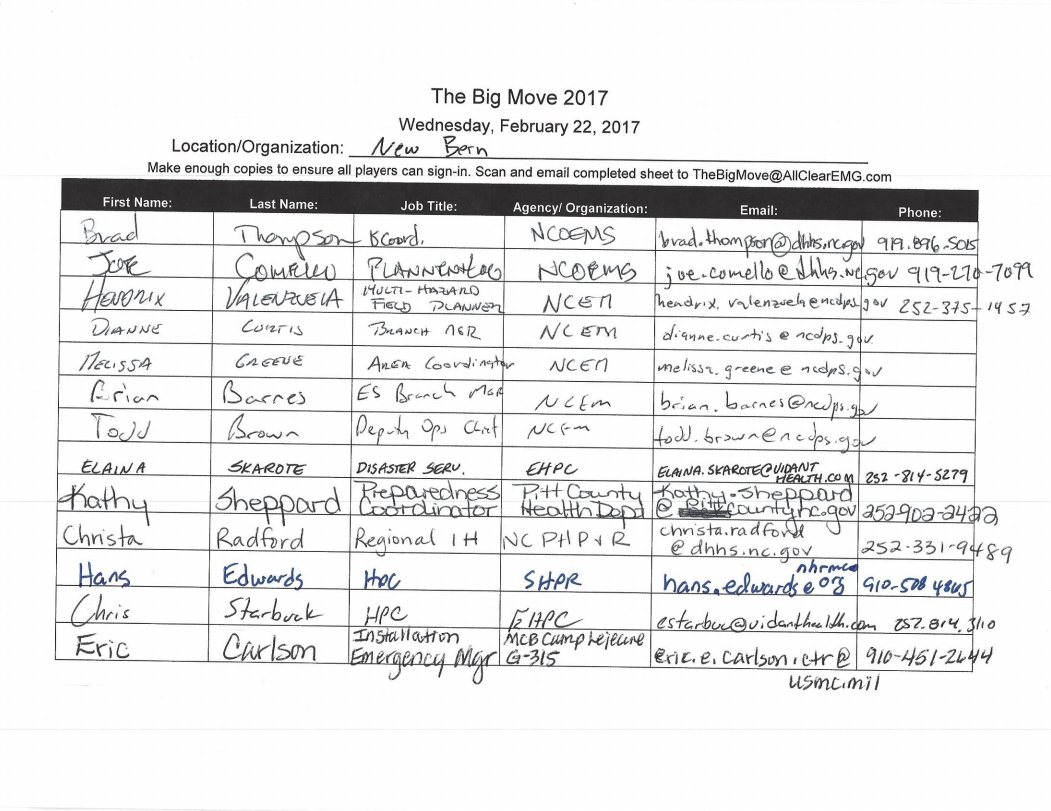 The Big Move 2017
Wednesday, February 22, 2017
Location/Organization: New Bern
Make enough copies to ensure all players can sign-in. Scan and email completed sheet to TheBigMove@AllClearEMG.com
First Name: Last Name: Job Title: Agency/ Organization: Email: Phone:
Brad Thompson Coord. NCOEMS brad.thompson@dhhs.nc.gov 919.896.5015
Joe Comello NCOEMS joe.comello@dhhs.nc.gov 919-270-7099
HENDRIX VALENZUELA MULTI-HAZARD FIELD PLANNER NCEM hendrix.valenzuela@ncdps.gov 252-375-1457
DIANNE CURTIS BRANCH MGR NCEM dianne.curtis@ncdps.gov
MELISSA GREENE AREA Coordinator NCEM melissa.greene@ncdps.gov
Brian Barnes ES Branch Mgr NCEM brian.barnes@ncdps.gov
Todd Brown Deputy Ops Chief NCEM todd.brown@ncdps.gov
ELAINA SKAROTE DISASTER SERV. EHPC ELAINA.SKAROTE@VIDANT HEALTH.COM 252-814-5279
Kathy Sheppard Preparedness Coordinator Pitt County Health Dept Kathy.Sheppard @ Pittcountync.gov 252-902-2422
Christa Radford Regional IH NC PHP&R christa.radford @dhhs.nc.gov 252-331-9489
Hans Edwards HPC SHPR hans.edwards@ nhrmc 910-508 4845
Chris Starbuck HPC EHPC cstarbuc@vidanthealth.com 252.814.3110
Eric Carlson Installation Emergency Mgr MCB Camp Lejeune G-315 eric.e.carlson.ctr@ usmc.mil 910-451-2644